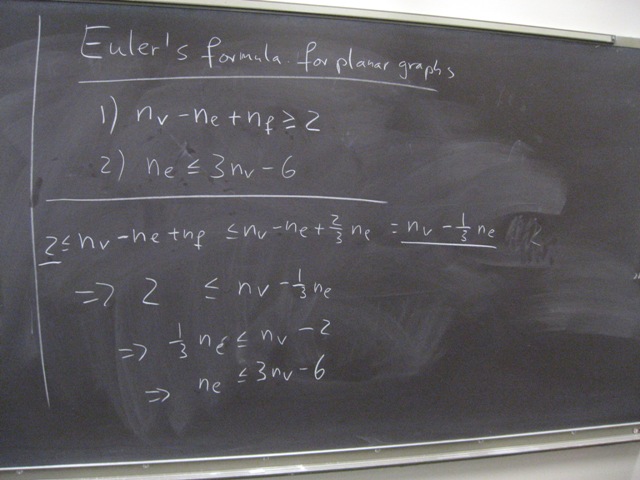 Euler's formula for planar graphs
1) nᵥ - nₑ + n_f ≥ 2
2) nₑ ≤ 3nᵥ - 6
2 ≤ nᵥ - nₑ + n_f ≤ nᵥ - nₑ + 2/3 nₑ = nᵥ - 1/3 nₑ
⇒ 2 ≤ nᵥ - 1/3 nₑ
⇒ 1/3 nₑ ≤ nᵥ - 2
⇒ nₑ ≤ 3nᵥ - 6